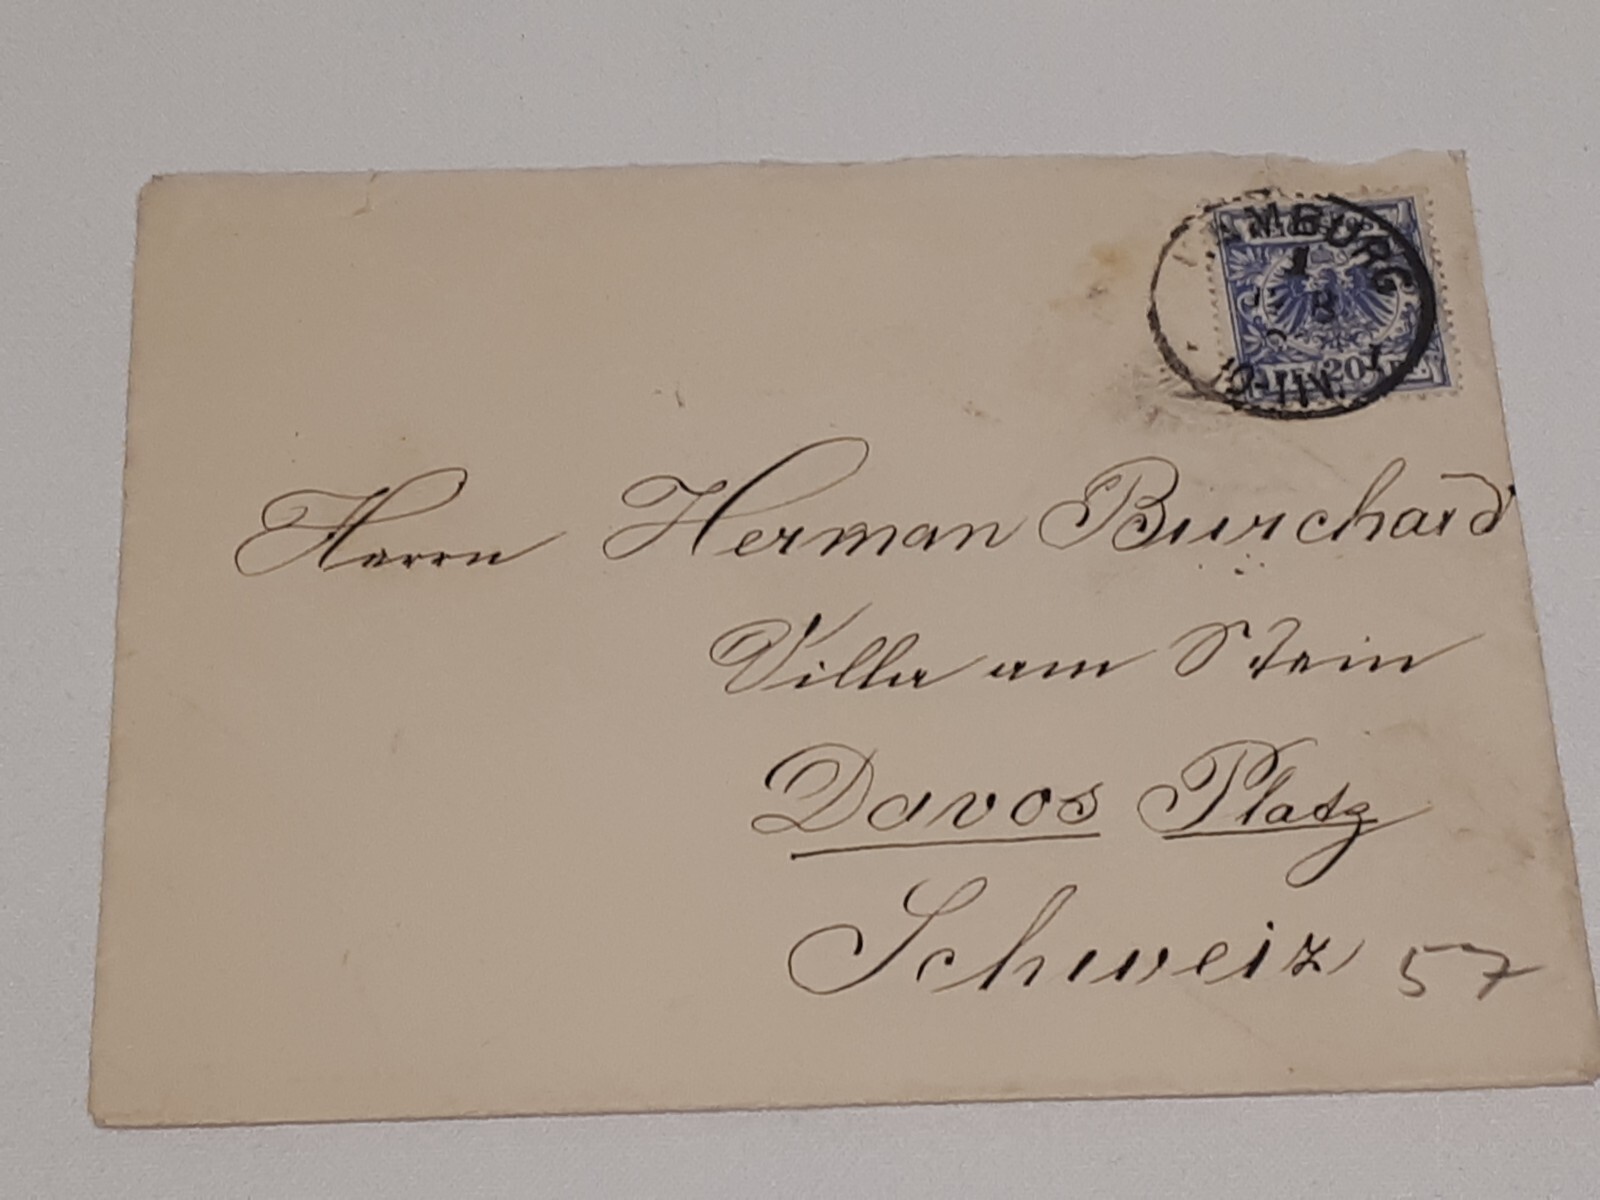 HAMBURG
1
10-11V.
20
Herrn Herman Burchard
Villa am Stein
Davos Platz
Schweiz 57